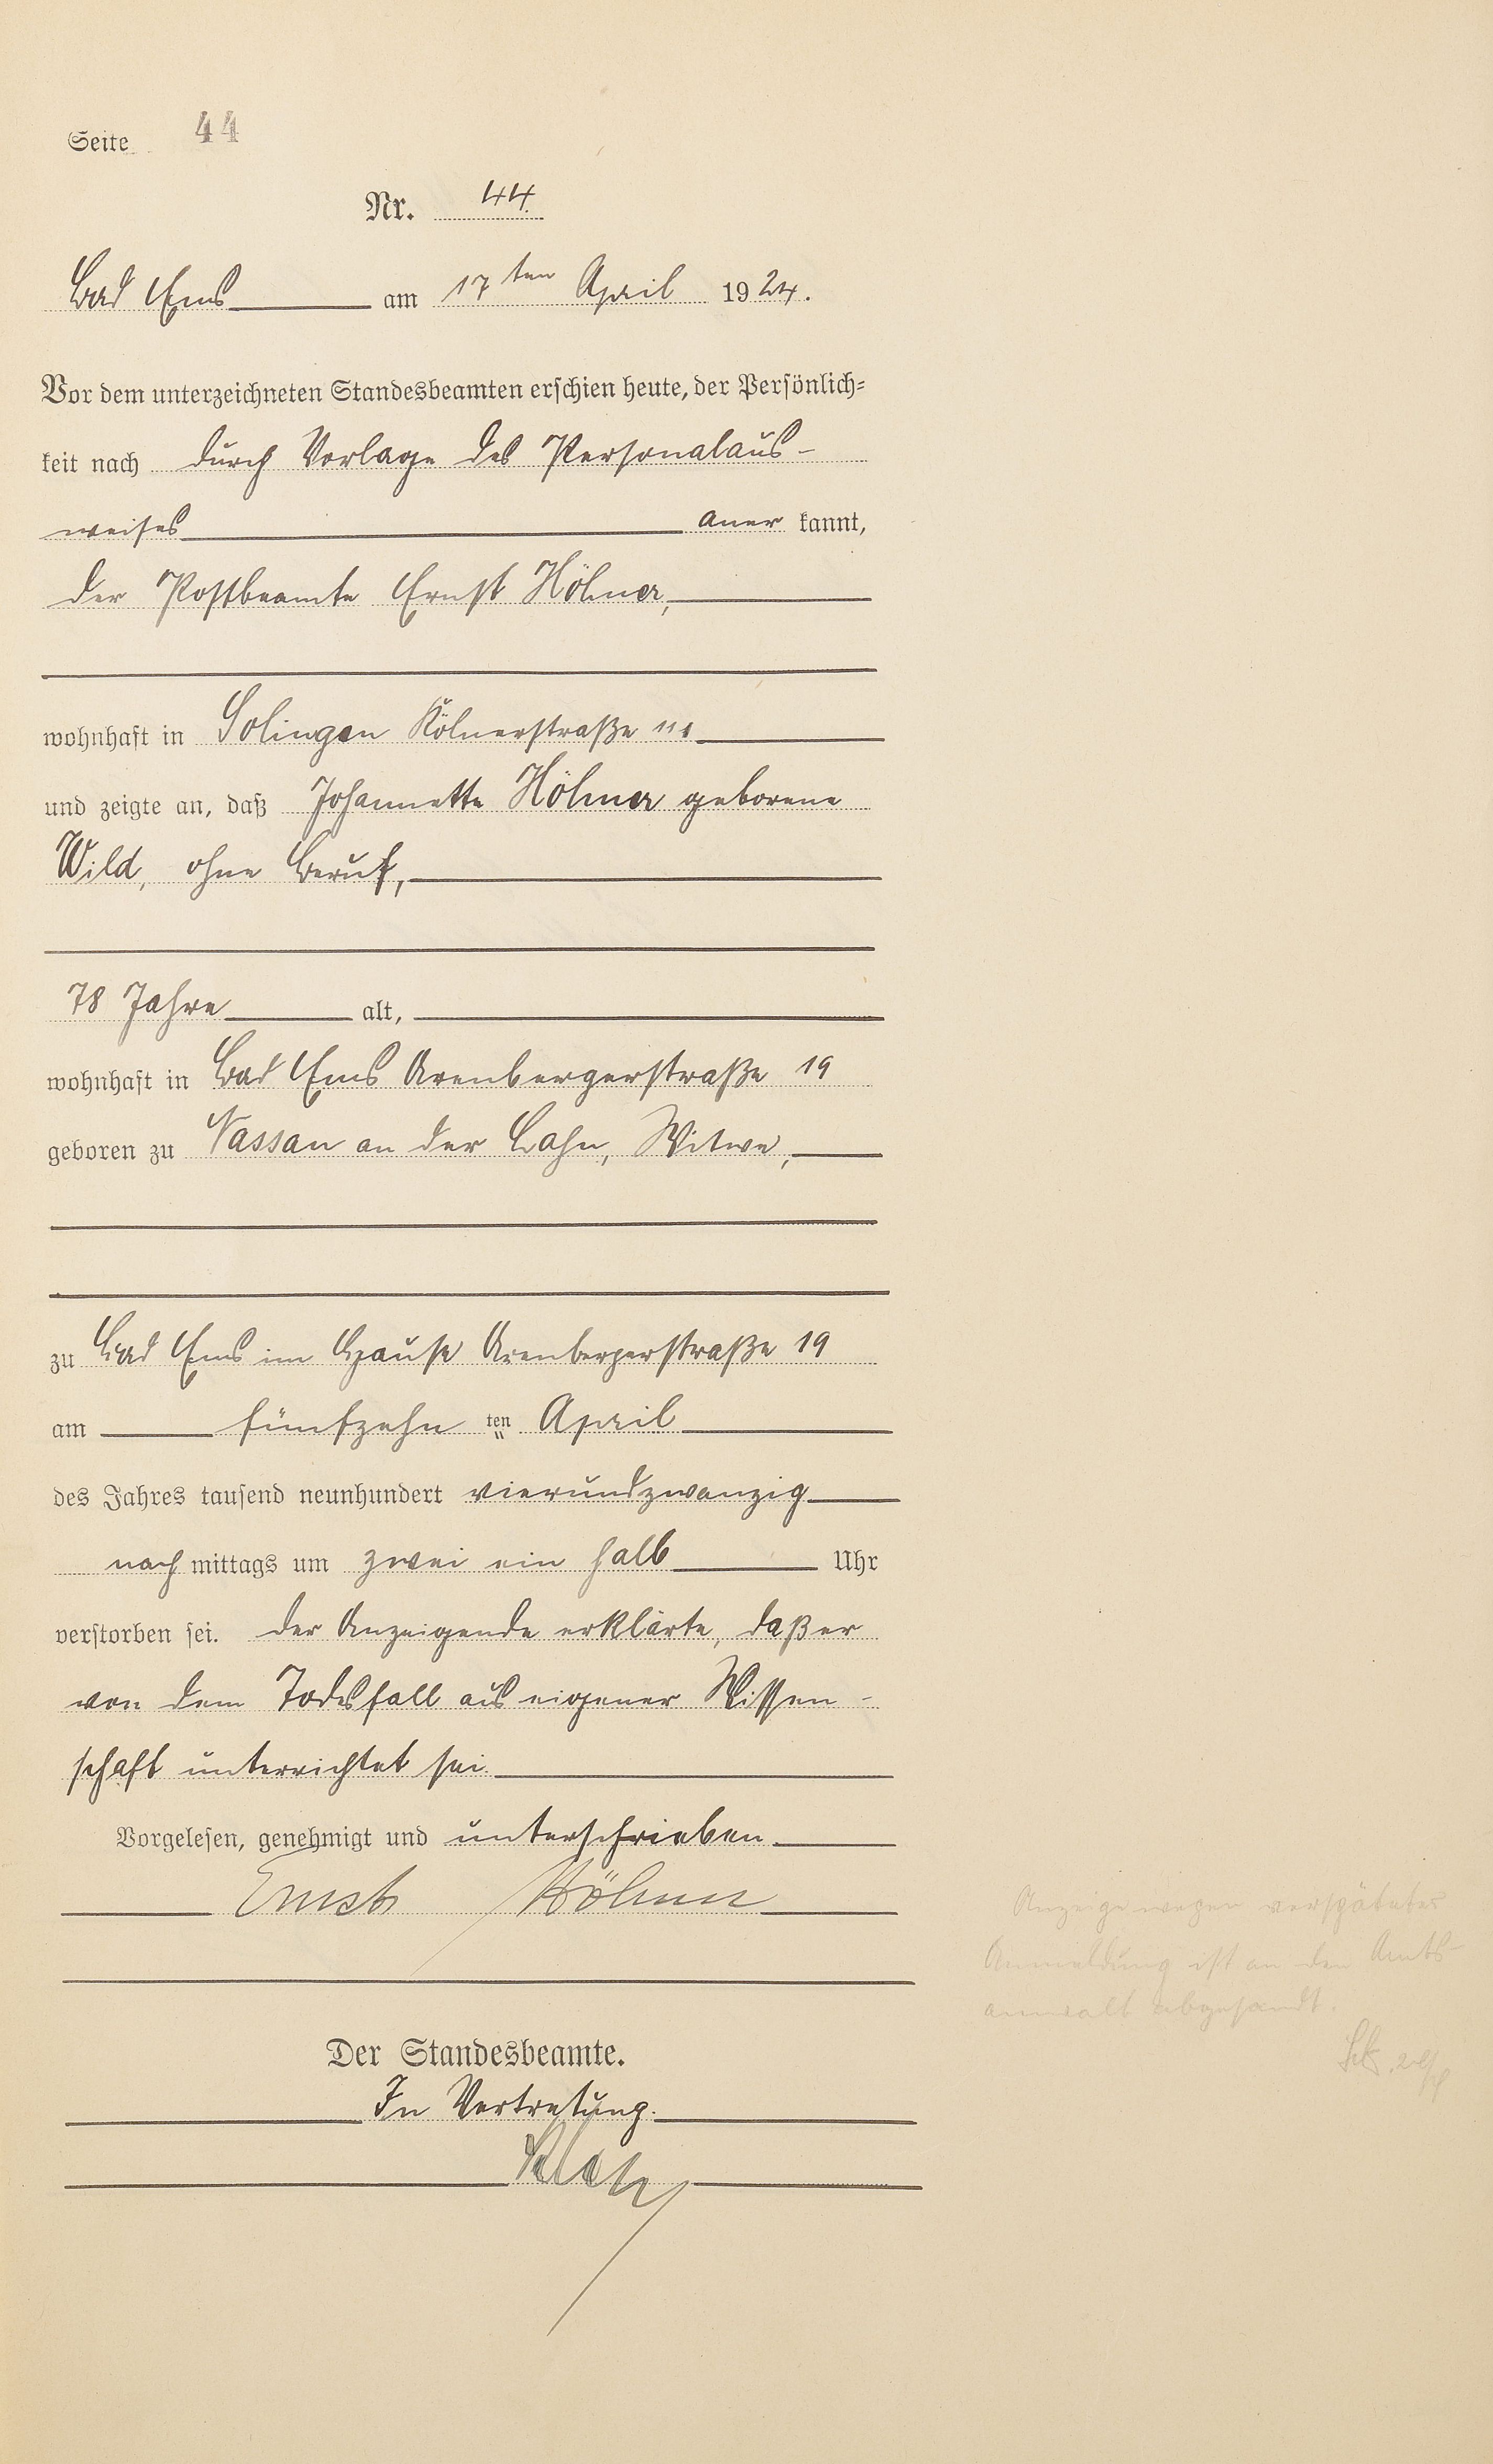 Seite 44
Nr. 44.
Bad Ems am 17ten April 1924.
Vor dem unterzeichneten Standesbeamten erschien heute, der Persönlich-
keit nach durch Vorlage des Personalaus-
weises anerkannt,
der Postbeamte Ernst Höhner,
wohnhaft in Solingen Kölnerstraße 111
und zeigte an, daß Johannette Höhner geborene
Wild, ohne Beruf,
78 Jahre alt,
wohnhaft in Bad Ems Arenbergerstraße 19
geboren zu Nassau an der Lahn, Witwe,
zu Bad Ems im Hause Arenbergerstraße 19
am fünfzehnten April
des Jahres tausend neunhundert vierundzwanzig
nachmittags um zwei ein halb Uhr
verstorben sei. Der Anzeigende erklärte, daß er
von dem Todesfall aus eigener Wissen-
schaft unterrichtet sei.
Vorgelesen, genehmigt und unterschrieben.
Ernst Höhner
Anzeige wegen verspäteter
Anmeldung ist an den Amts-
anwalt abgesandt.
Der Standesbeamte.
In Vertretung.